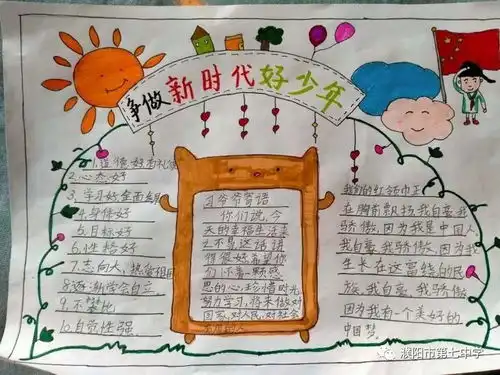 争做新时代好少年
2.心态好
3.学习好全面
4.身体好
5.目标好
6.性格好
7.志向大,热爱祖国
8.逐渐学会自立
9.不攀比
10.自觉性强.
习爷爷寄语
你们说,今
天的幸福生活来
之不易这话讲
得很好希望你
们怀着感
恩的心珍惜时光
努力学习,将来做对
国家,对人民,对社会
我们的红领巾正
在胸前飘扬我自豪我
骄傲,因为我是中国人
我自豪,我骄傲,因为我
生长在这富饶的民
族,我自豪,我骄傲
因为我有一个美好的
中国梦.
濮阳市第七中学